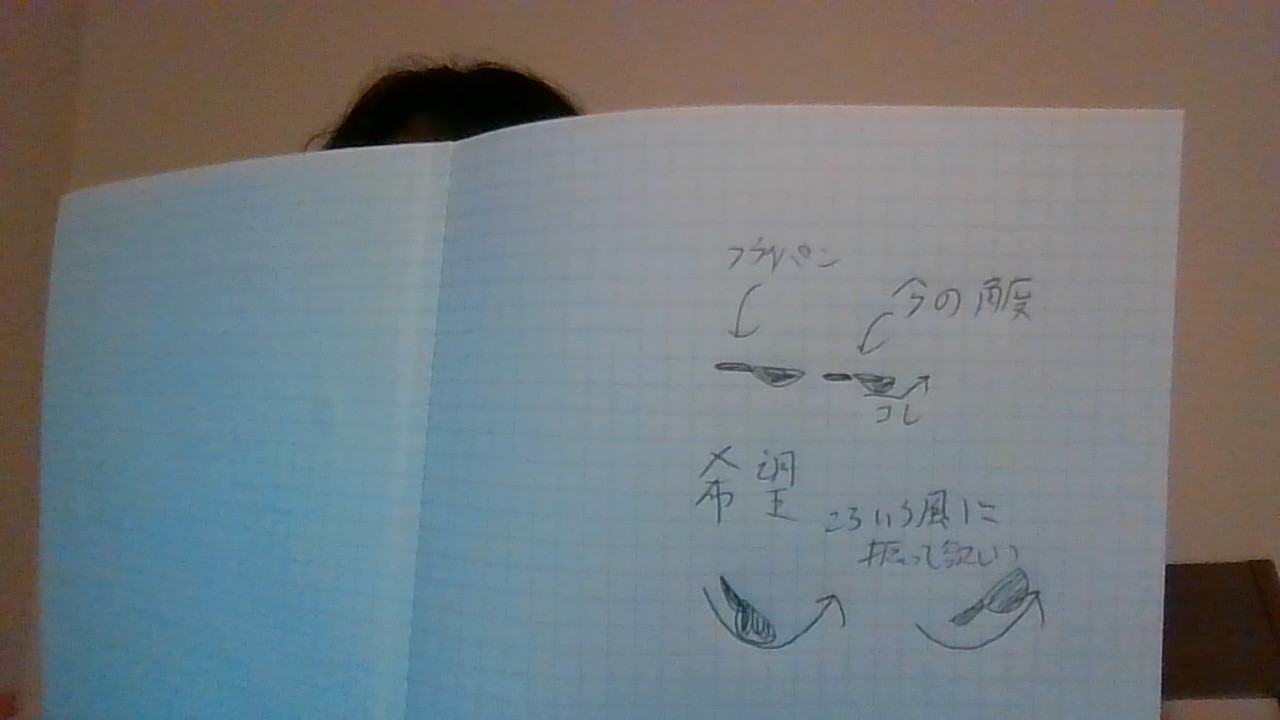 フライパン
今の角度
コレ
希望
こういう風に
振って欲しい